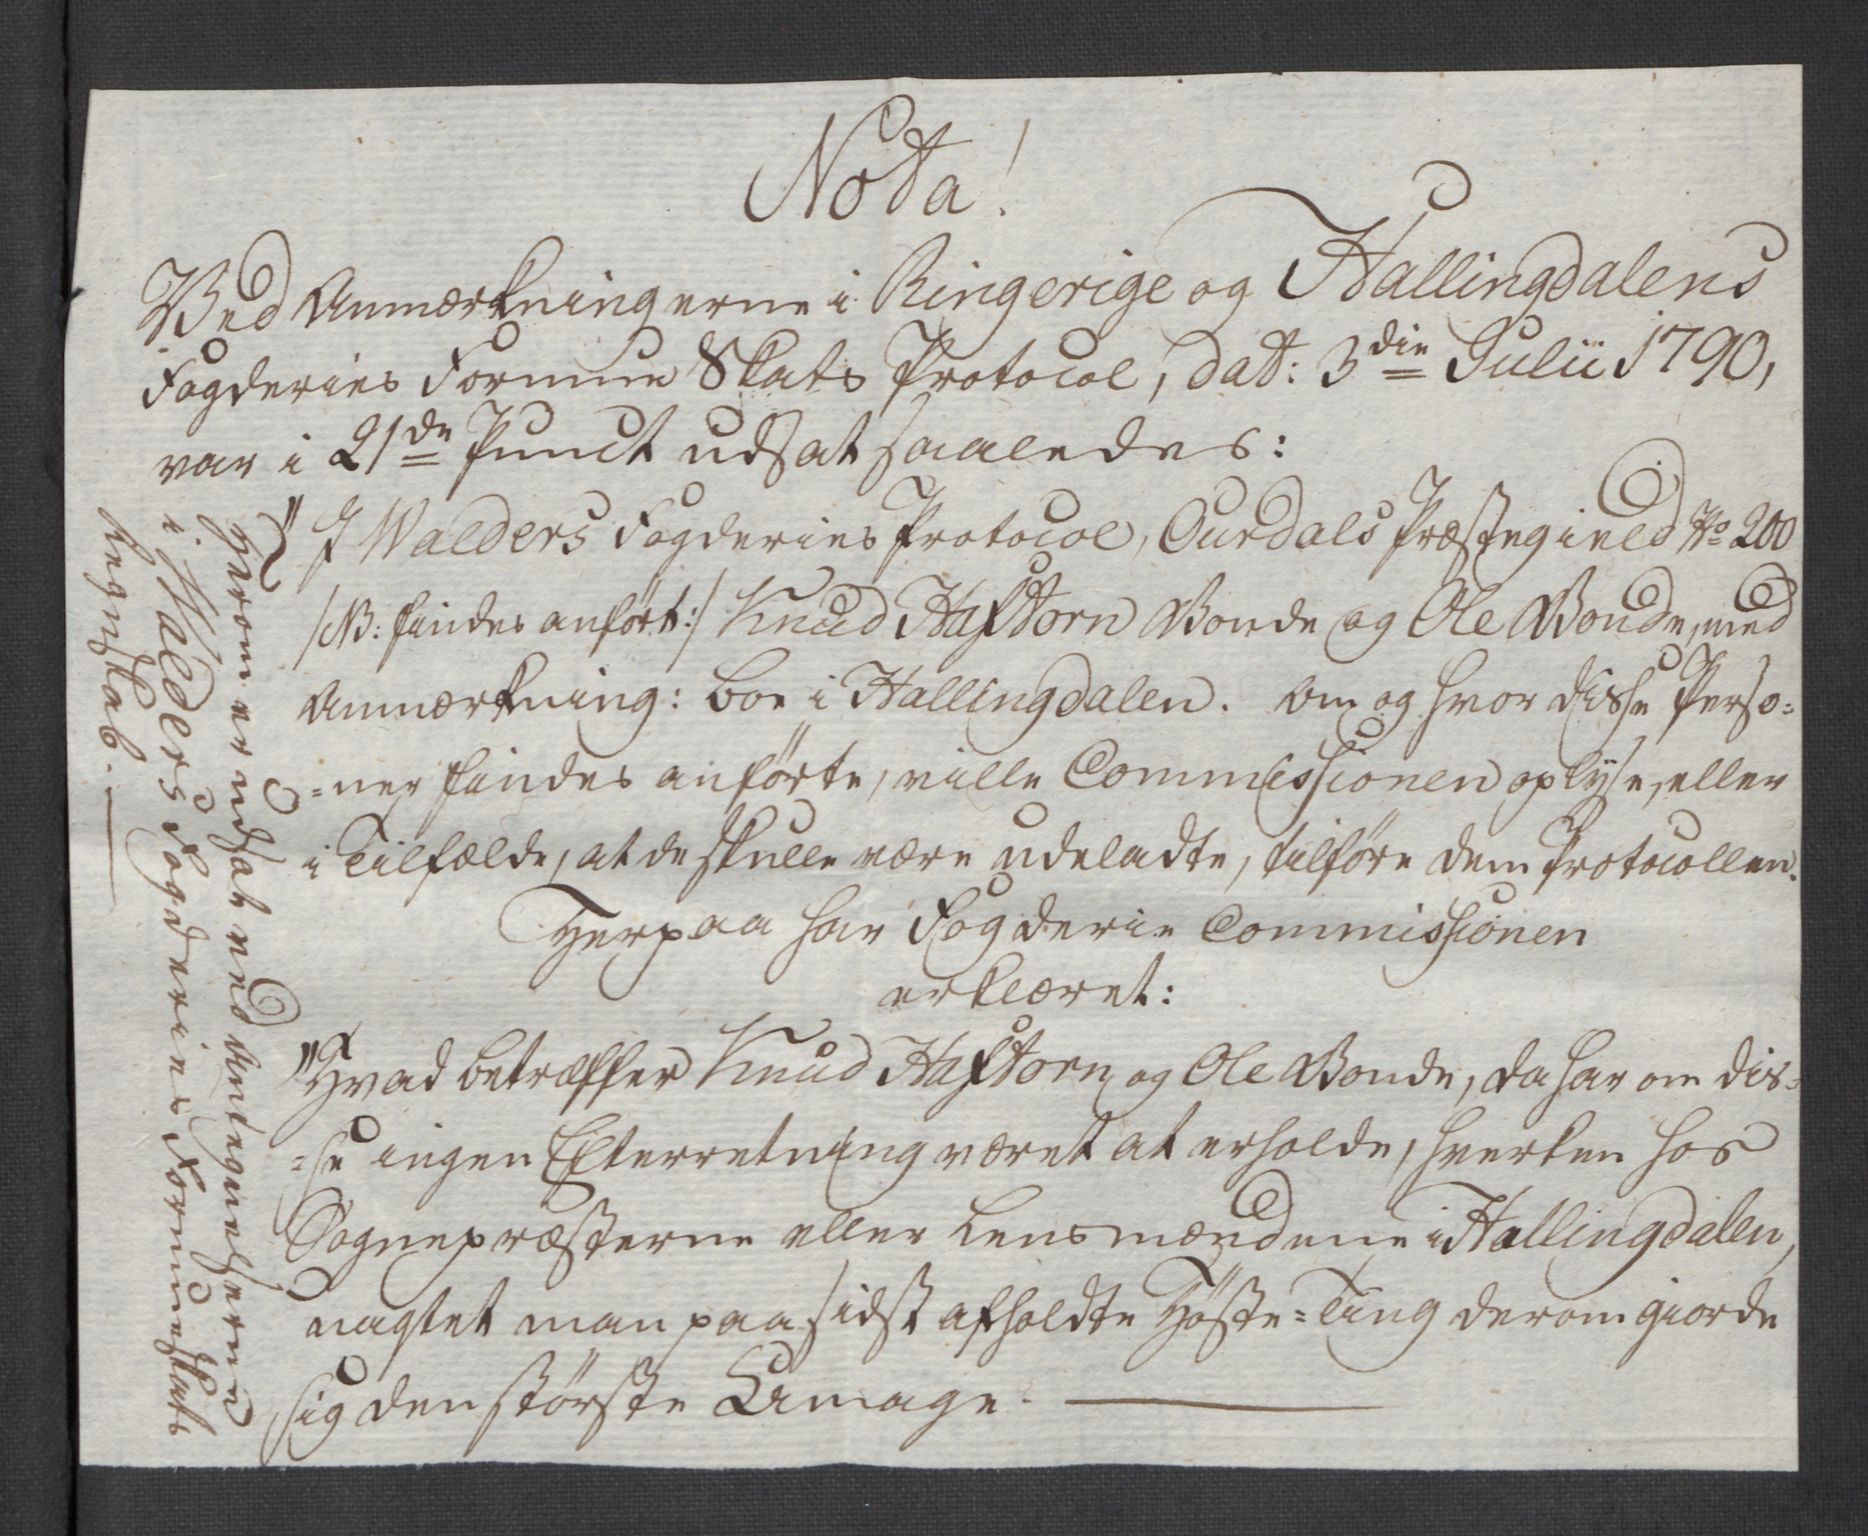 Nota!
Ved Anmærkningerne i Ringerige og Hallingdalens
Fogderies Formue Skats Protocol, dat: 3die Julii 1790,
var i 21de Punct udsat saaledes:
"I Walders Fogderies Protocol, Ourdals Præstegield No 200
/NB: findes anført:/ Knud Haftorn Bonde og Ole Bonde, med
Anmærkning: boe i Hallingdalen. Om og hvor disse Perso-
-ner findes anførte, ville Commissionen oplyse, eller
i Tilfælde, at de skulle være udeladte, tilføre dem Protocollen.
Herpaa har Fogderie Commissionen
erklæret:
"Hvad betræffer Knud Haftorn og Ole Bonde, da har om dis-
-se ingen Efterretning været at erholde, hverken hos
Sognepræsterne eller Lensmændene i Hallingdalen,
uagtet man paa sidst afholdte Høste-Ting derom giorde
sig den største Umage.
Herom er udsat ved Antegnelserne
i Walders Fogderies Formueskats
Regnskab.